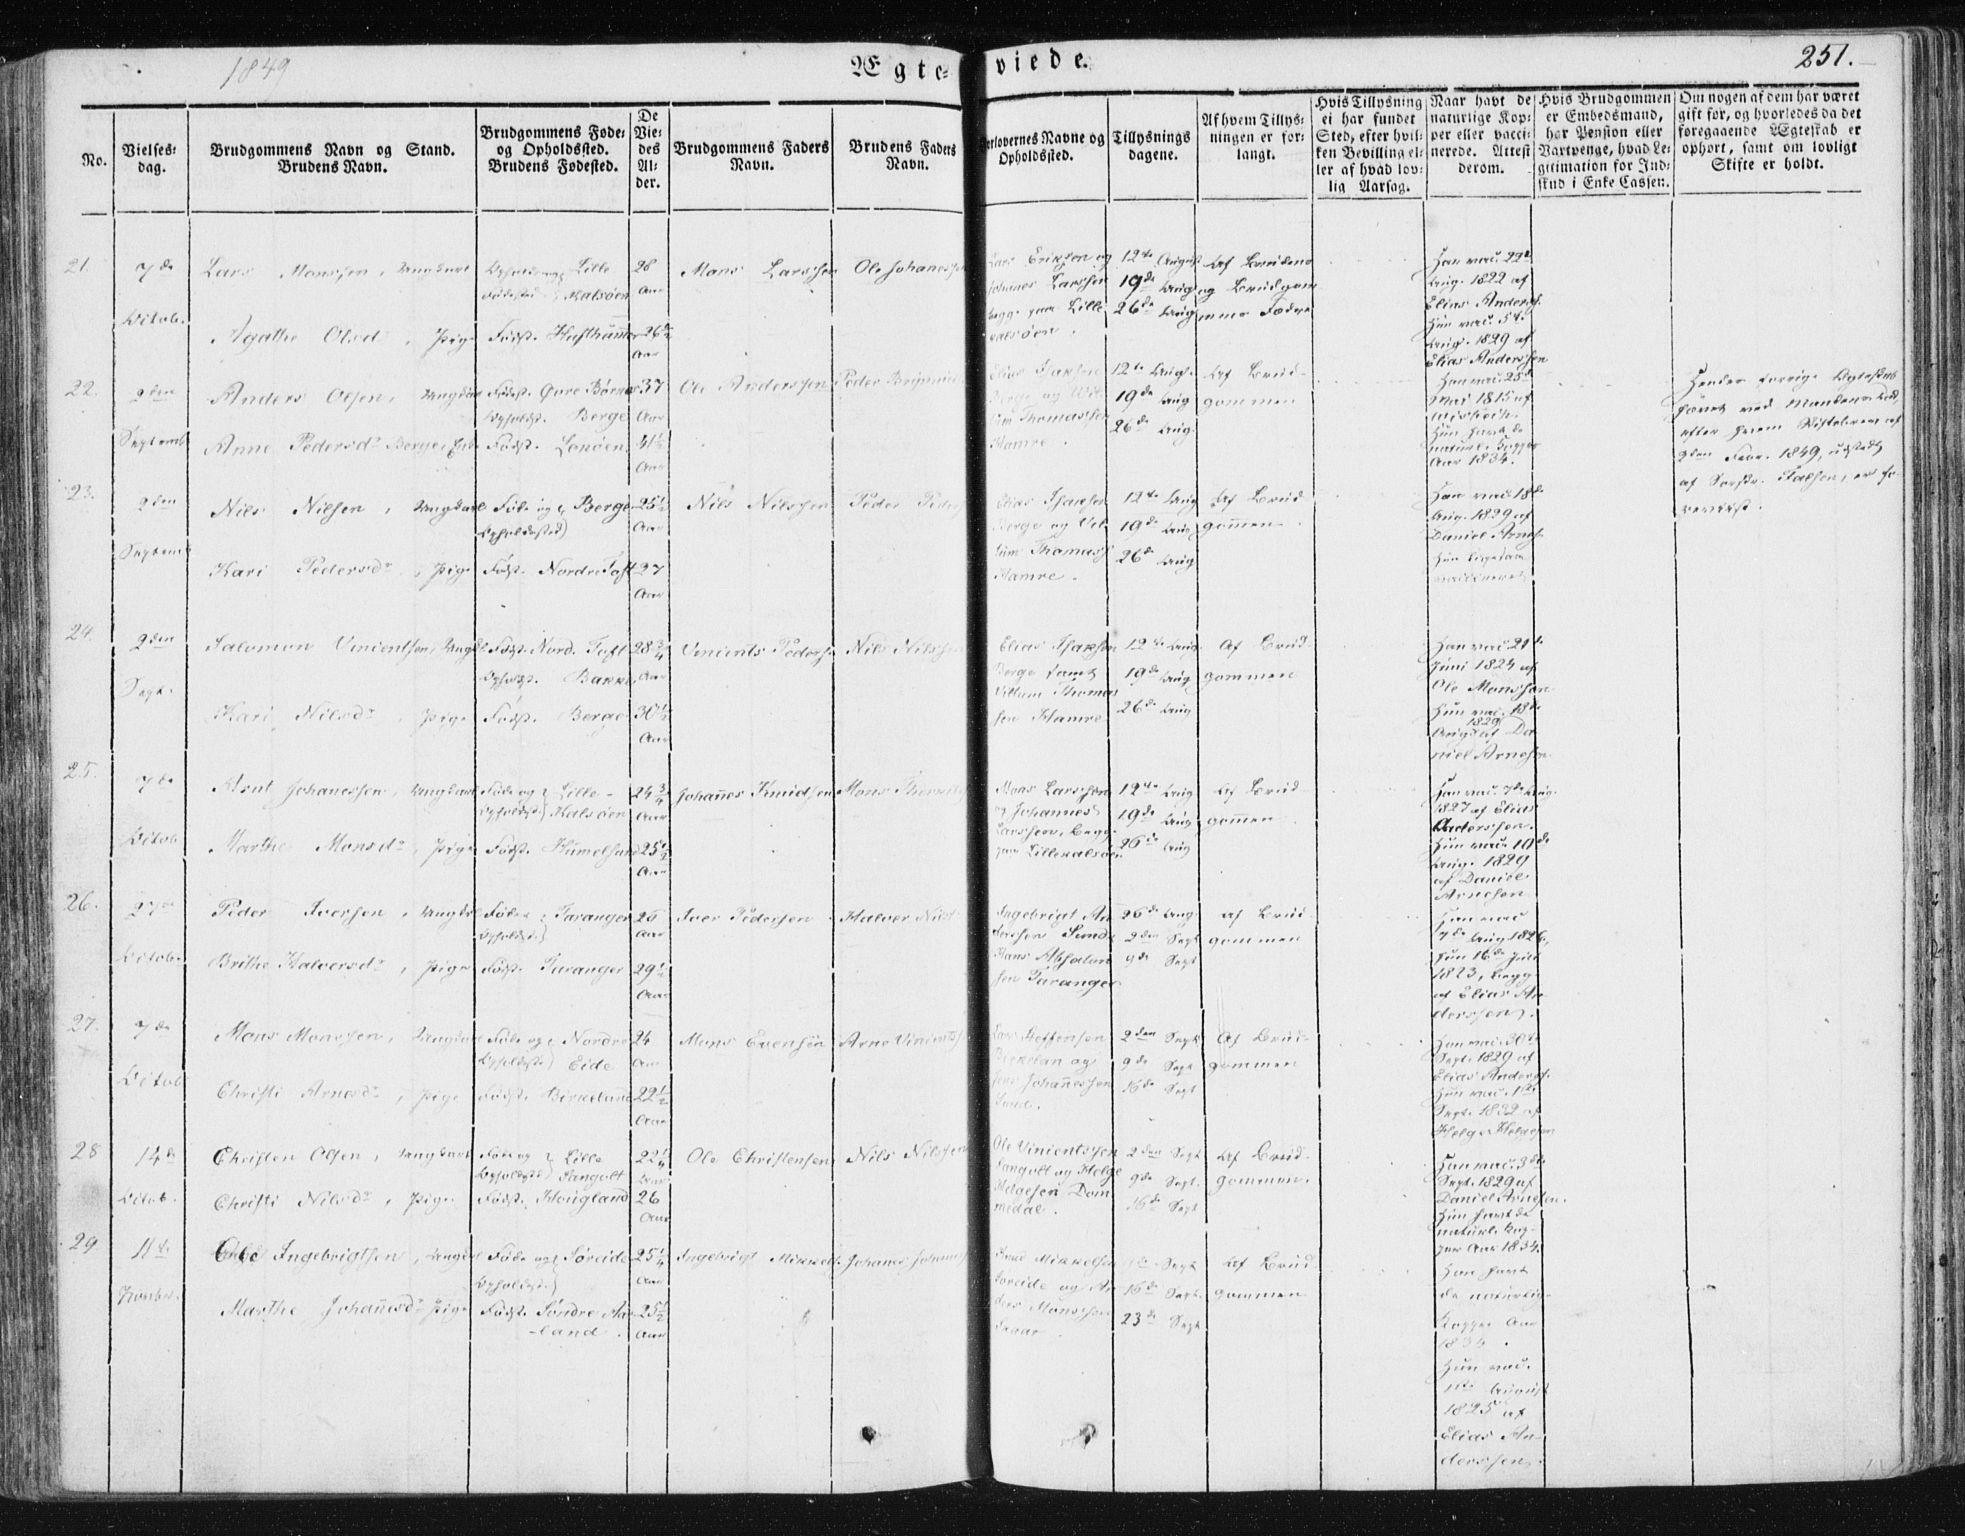 1849
Ægteviede.
251.
No.
Vielses-
dag.
Brudgommens Navn og Stand.
Brudens Navn.
Brudgommens Føde-
og Opholdssted.
Brudens Fødested.
De
Vie-
des
Al-
der.
Brudgommens Faders
Navn.
Brudens Faders
Navn.
Forlovernes Navne og
Opholdssted.
Tillysnings
dagene.
Af hvem Tillys-
ningen er for-
langt.
Hvis Tillysning
ei har fundet
Sted, efter hvil-
ken Bevilling el-
ler af hvad lov-
lig Aarsag.
Naar havt de
naturlige Kop-
per eller vacci-
nerede. Attest
derom.
Hvis Brudgommen
er Embedsmand,
har Pension eller
Vartpenge, hvad Le-
gitimation for Ind-
skud i Enke Cassen.
Om nogen af dem har været
gift før, og hvorledes da det
foregaaende Ægteskab er
ophørt, samt om lovligt
Skifte er holdt.
21.
7de
Octob.
Lars Monssen, Ungkarl
Agathe Olsd., Pige
Lille
Kalsöen
Födt. Hufthammer
28
Aar
26
Aar
Mons Larssen
Ole Johanessen
Lars Eriksen og
Johanes Larssen
begge paa Lille
Kalsöen.
12te August
19de Aug
26de Aug
Af Brudens
og Brudgom
mens Fædre
Han vac. 22de
Aug. 1822 af
Elias Anders.
Hun vac. 5te
Aug. 1829 af
Elias Anderssen
22.
9den
Septemb
Anders Olsen, Ungkarl
Anne Pedersdr Berge, Enke
Födt. Övre Börnes
Opholdst. Berge
Födt. Lonöen
37
Aar
41½
Aar
Ole Anderssen
Peder Brynnild
Elias Isaksen
Berge og Wil
lum Thomassen
Hamre.
12te Aug.
19de Aug
26de Aug.
Af Brud-
gommen
Han vac. 25de
Mai 1815 af
Hun havt de
naturl. Kopper
Aar 1834.
Hendes forrige Ægteskab
hævet ved Mandens Död,
9den Febr. 1849, udstedt
23.
9den
Septemb
Nils Nilsen, Ungkarl
Kari Pedersdr, Pige
Föde og Opholdssted Berge
Födt. Nordre Toft
25½
Aar
27
Aar
Nils Nilssen
Peder Peders
Elias Isaksen
Berge og Vil
lum Thomass
Hamre.
12te Aug
19de Aug
26de Aug
Af Brud
gommen.
Han vac. 18de
Aug. 1829 af
Daniel Arnes.
Hun ligesaa
vaccineret
24.
9den
Sept.
Salomon Vincentsen, Ungkl
Kari Nilsdr, Pige
Födt. Nord. Toft
Opholdst. Bakke
Födt. Berge
28¾
Aar
30½
Aar
Vincents Peders
Nils Nilssen
Elias Isaksen
Berge samt
Villum Thomas
sen Hamre
12te Aug.
19de Aug
26de Aug
Af Brud-
gommen
Han vac. 21de
Juni 1824 af
Ole Monssen
Hun vac. 18de
Aug. 1829 af Da
niel Arnesen
25.
7de
Octob
Knut Johanessen, Ungkarl
Marthe Monsdr, Pige
Föde og Opholdst. Lille-
Kalsöen
Födt. Humelsund
24¾
Aar
25½
Aar
Johañes Knudsen
Mons
Mons Larssen
og Johannes
Larssen, begge
paa Lillekalsöen
12te Aug
19de Aug
26de Aug
Af Brud-
gom̃en
Han vac. 7de Aug.
1827 af Elias
Anderssen.
Hun vac. 19de
Aug. 1829
af Daniel
Arnesen
26.
27de
Octob.
Peder Iversen, Ungkarl
Brithe Halvorsdr, Pige
Föde og Opholdst. Taranger
Födt. Taranger
25
Aar
29½
Aar
Iver Pedersen
Halvor Nils
Ingebrigt An
derssen Sund
Hans Absalon
sen Taranger
26de Aug.
2den Sept
9de Sept
Af Brud-
gommen
Han vac
7de Aug 1826,
Hun 16de Juli
1823, begge
af Elias An
derssen.
27.
7de
Octob
Mons Monssen, Ungkarl
Christi Arnesdr, Pige
Föde og Opholdst. Nordre
Eide
Födt. Birkeland
24
Aar
22½
Aar
Mons Evensen
Arne Vincents
Lars Steffensen
Birkelan og
Jens Johañessen
Sund.
2den Sept
9de Sept
16de Sept
Af Brud-
gommen
Han vac. 30te
Sept. 1829 af
Elias Anders.
Hun vac. 1ste
Sept. 1832 af
Helge Helgesen
28
14de
Octob.
Christen Olsen, Ungkarl
Christi Nilsdr, Pige
Föde og Opholdst. Lille
Fangolt
Födt. Hougland
22¼
Aar
26
Aar
Ole Christensen
Nils Nilssen
Ole Vincentssen
Fangolt og Helge
Helgesen Dom
medal.
2den Sept
9de Sept.
16de Sept
Af Brud-
gommen.
Han vac. 3de
Sept. 1829 af
Daniel Arnesen.
Hun havt de
naturl. Kop-
per Aar 1834.
29
11te
Novbr.
Ingebrigtsen, Ungkl
Marthe Johañesdr, Pige
Föde og Opholdst. Söreide
Födt. Söndre Aar-
land.
25¼
Aar
25½
Aar
Ingebrigt Mikkels.
Johanes Johannes
Knud Mikkelsen
Söreide og An
ders Monssen
9de Sept
16de Sept.
23de Sept
Af Brud-
gommen
Han havt
de naturlige
Kopper Aar
1834.
Hun vac.
1ste August
1825 af
Elias An-
derssen.